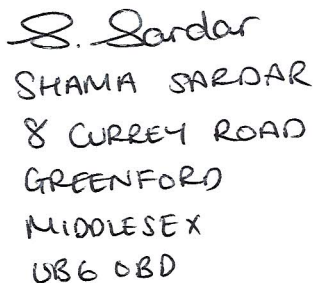 S. Sardar
SHAMA SARDAR
8 CURREY ROAD
GREENFORD
MIDDLESEX
UB6 0BD